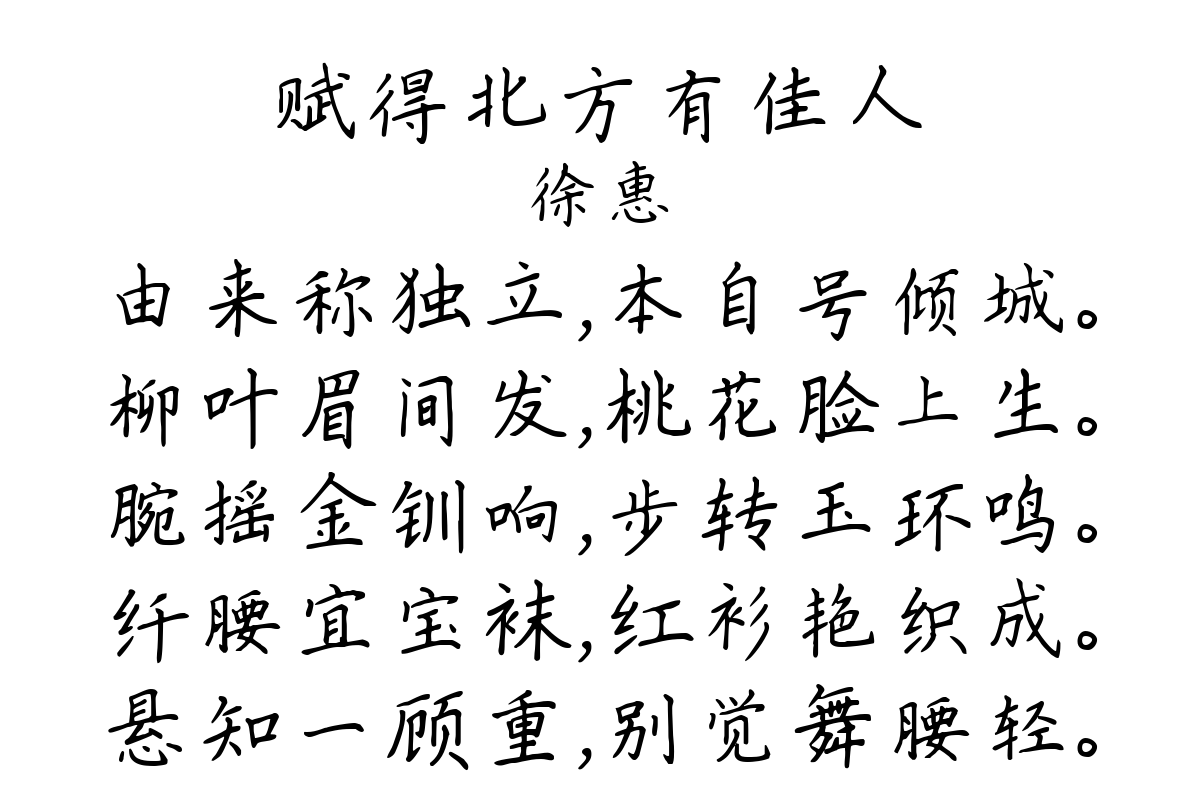 赋得北方有佳人
徐惠
由来称独立,本自号倾城。
柳叶眉间发,桃花脸上生。
腕摇金钏响,步转玉环鸣。
纤腰宜宝袜,红衫艳织成。
悬知一顾重,别觉舞腰轻。